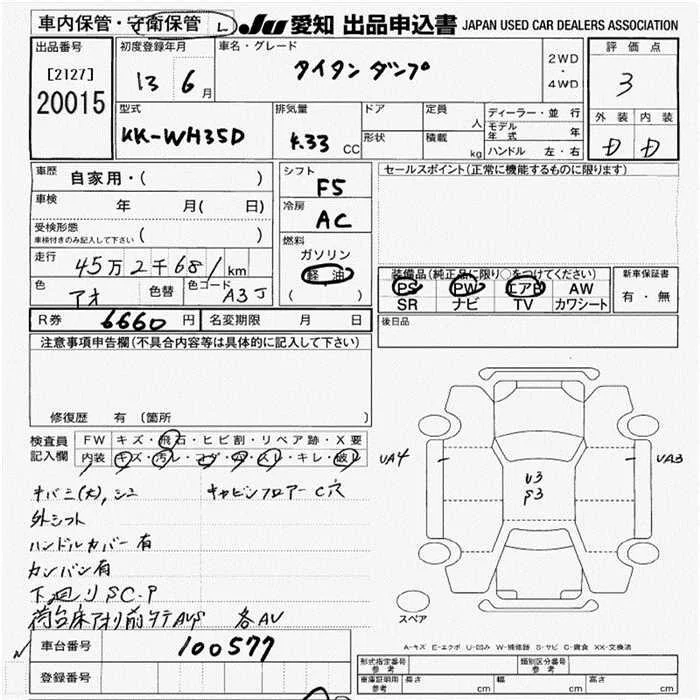 車内保管・守衛保管 L JU 愛知 出品申込書 JAPAN USED CAR DEALERS ASSOCIATION
出品番号 [2127] 20015
初度登録年月 13 6月
車名・グレード タイタンダンプ
2WD・4WD
評価点 3
外装 内装 D D
型式 KK-WH35D
排気量 4.33 CC
ドア 形状
定員 人 積載 kg
ディーラー・並行
モデル年式 年
ハンドル 左・右
車歴 自家用・( )
車検 年 月( 日)
受検形態 車検付きのみ記入して下さい ( )
走行 45万2千681km
色 アオ 色替 色コード A3J
シフト F5
冷房 AC
燃料 ガソリン 軽油 ( )
セールスポイント(正常に機能するものに限ります)
装備品(純正品に限り○をつけてください)
PS PW エアB AW
SR ナビ TV カワシート
新車保証書 有・無
後日品
R券 6660円 名変期限 月 日
注意事項申告欄(不具合内容等は具体的に記入して下さい)
修復歴 有(箇所 )
検査員記入欄 FW キズ・飛石・ヒビ割・リペア跡・X要
内装 キズ・汚レ・コゲ・穴・スレ・キレ・破レ
キバミ(大), シミ キャビンフロアーC穴
外シフト
ハンドルカバー有
カンバン有
下廻りSC.P
荷台床アオリ前タテAVS 各AV
UA4 U3 S3 UA3
スペア
A-キズ E-エクボ U-凹み W-補修跡 S-サビ C-腐食 XX-交換済
車台番号 100577
登録番号
形式指定番号 参考 類別区分番号 参考
車庫証明用 参考 長さ cm 幅 cm 高さ cm